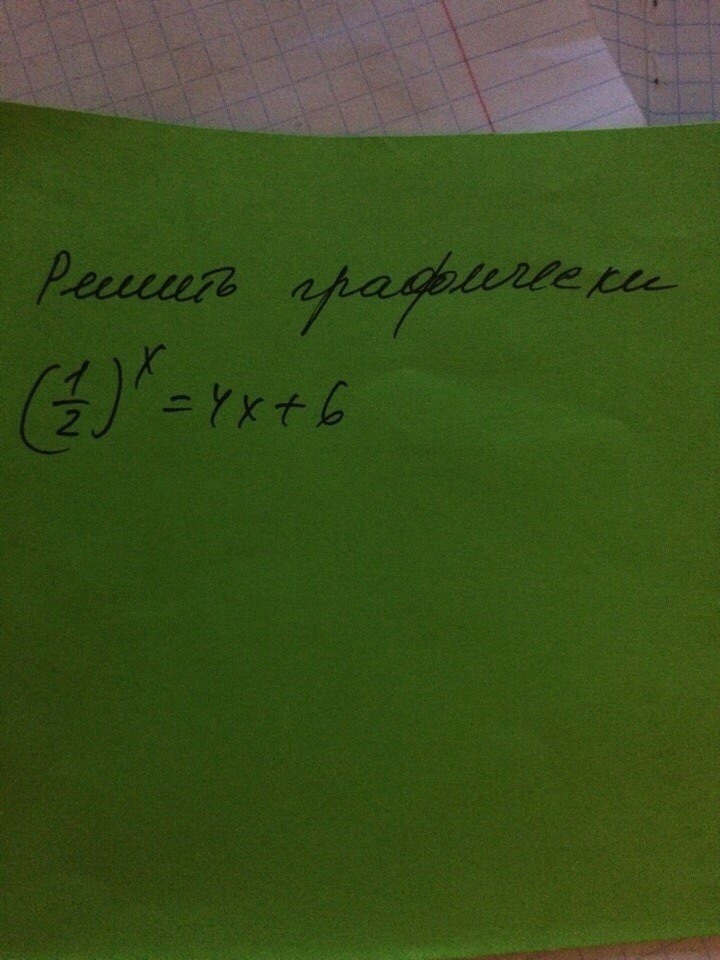 Решить графически
(1/2)^x = 4x + 6